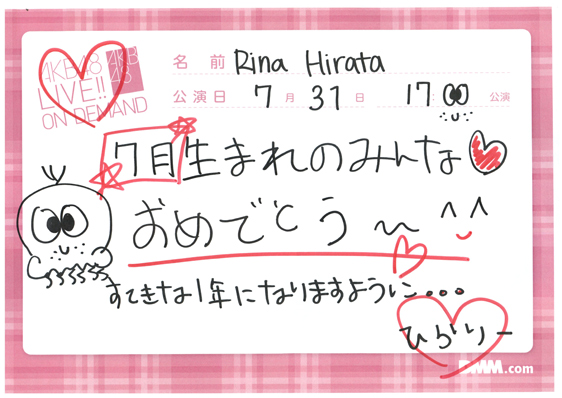 AKB48
LIVE!!
ON DEMAND
AKB
48
名前 Rina Hirata
公演日 7月31日 17:00公演
7月生まれのみんな
おめでとう〜^^
すてきな1年になりますように...
ひらりー
DMM.com